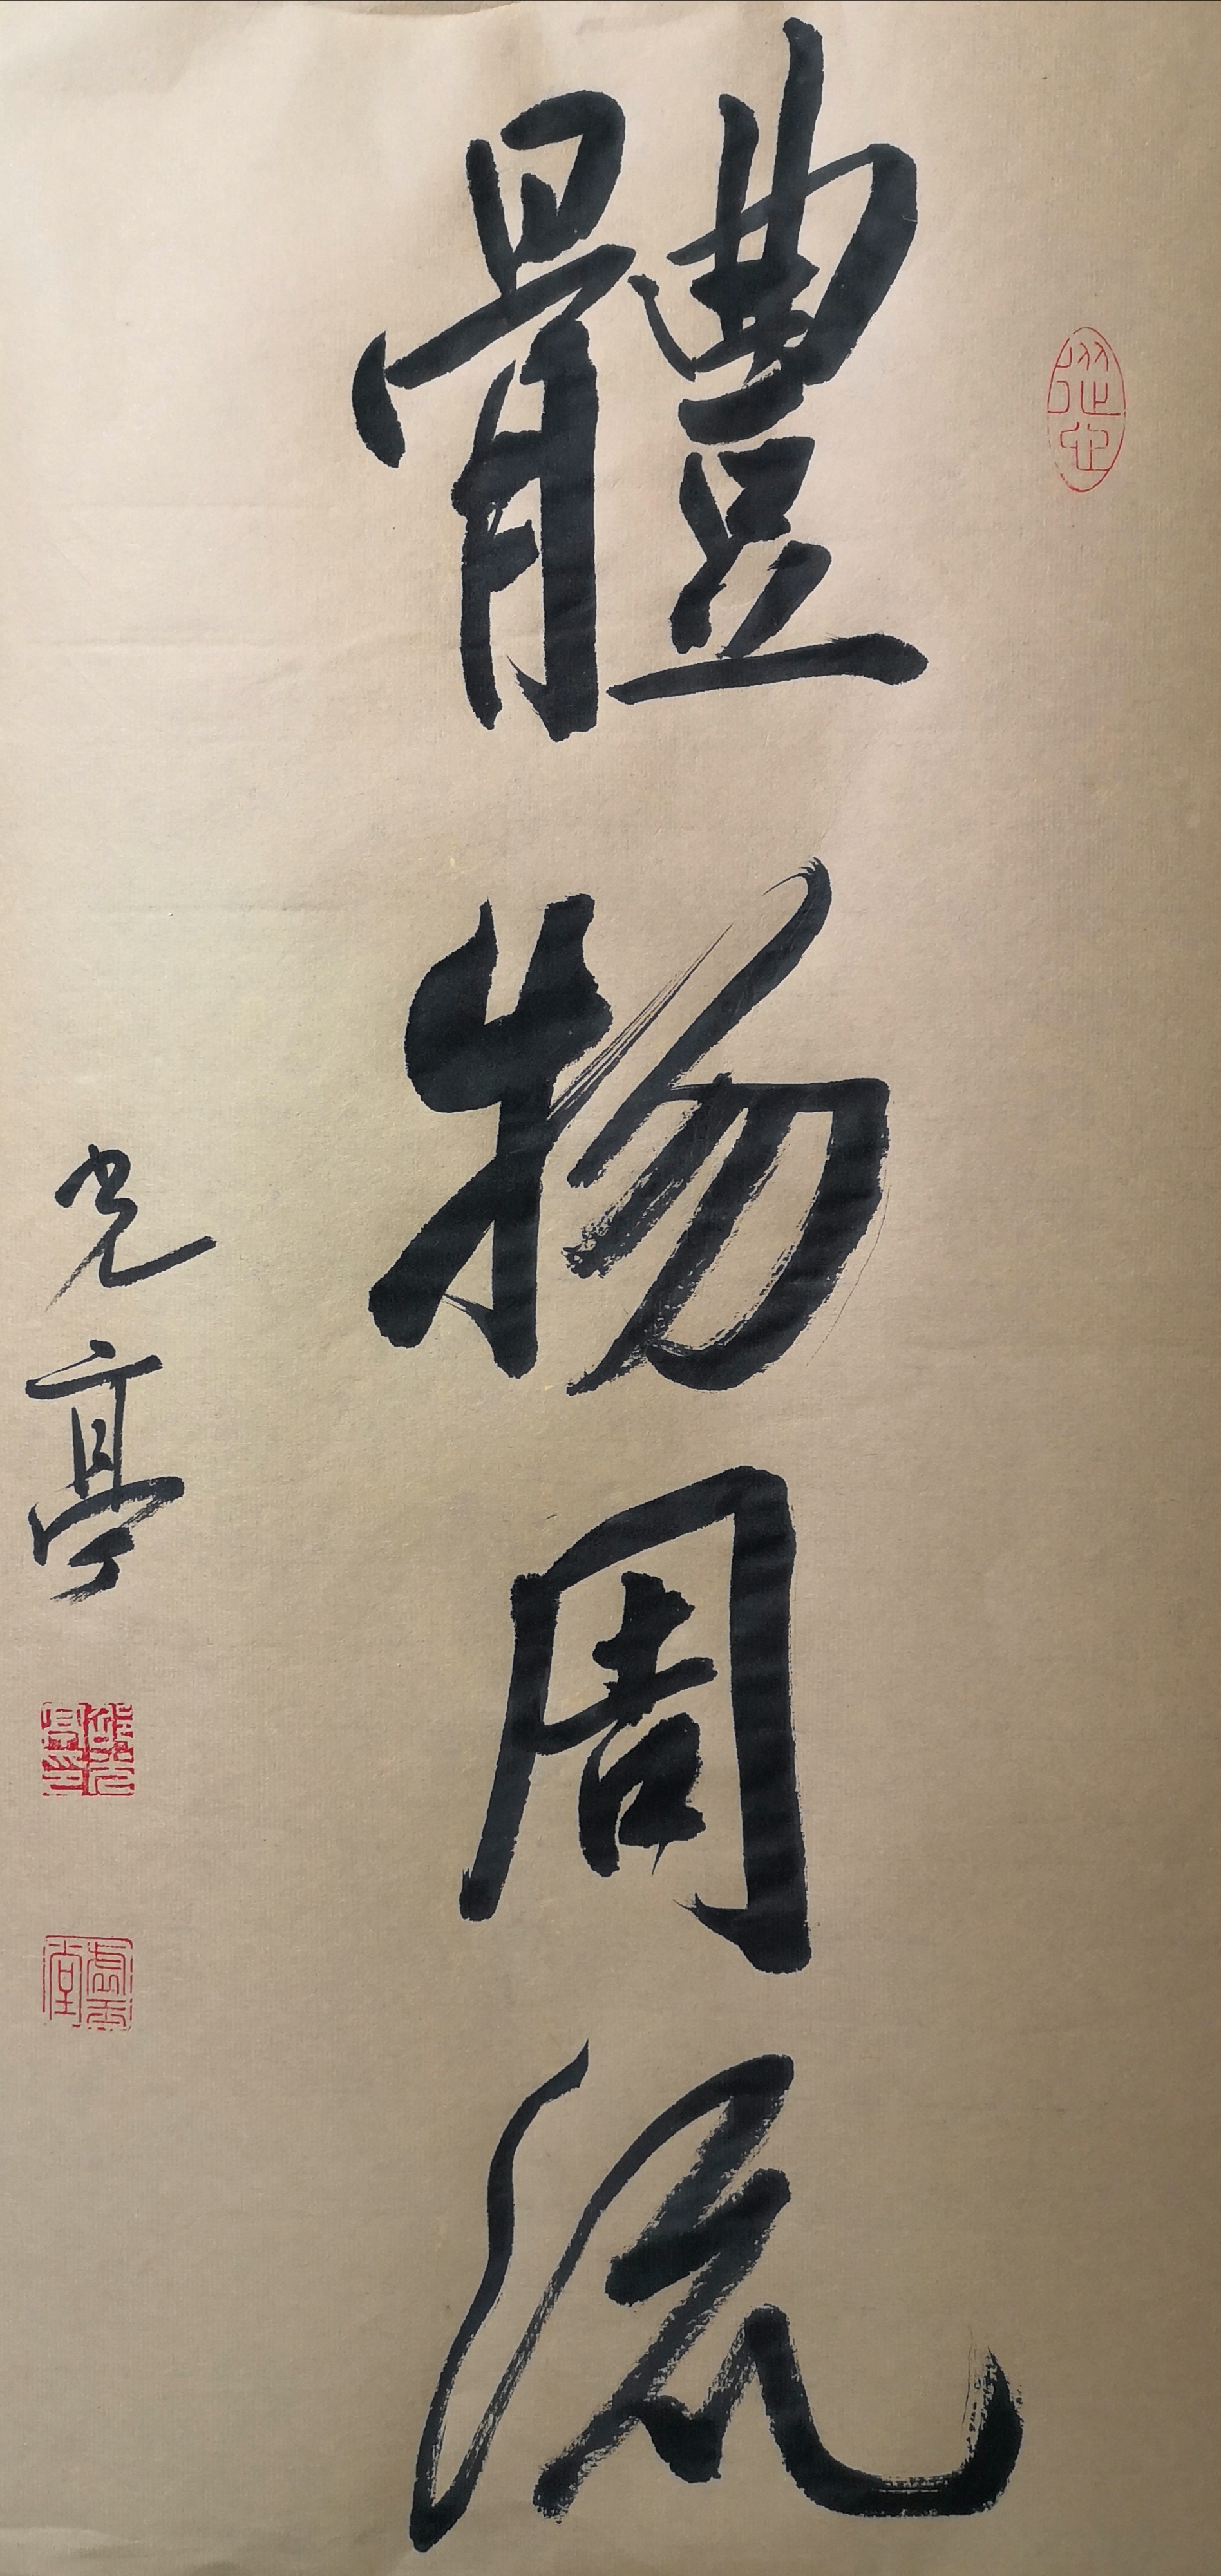 體物周流
光亭